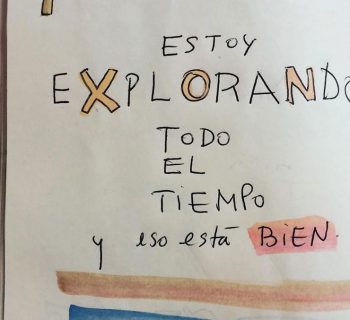 ESTOY
EXPLORANDO
TODO
EL
TiEMPO
y eso está BiEN.